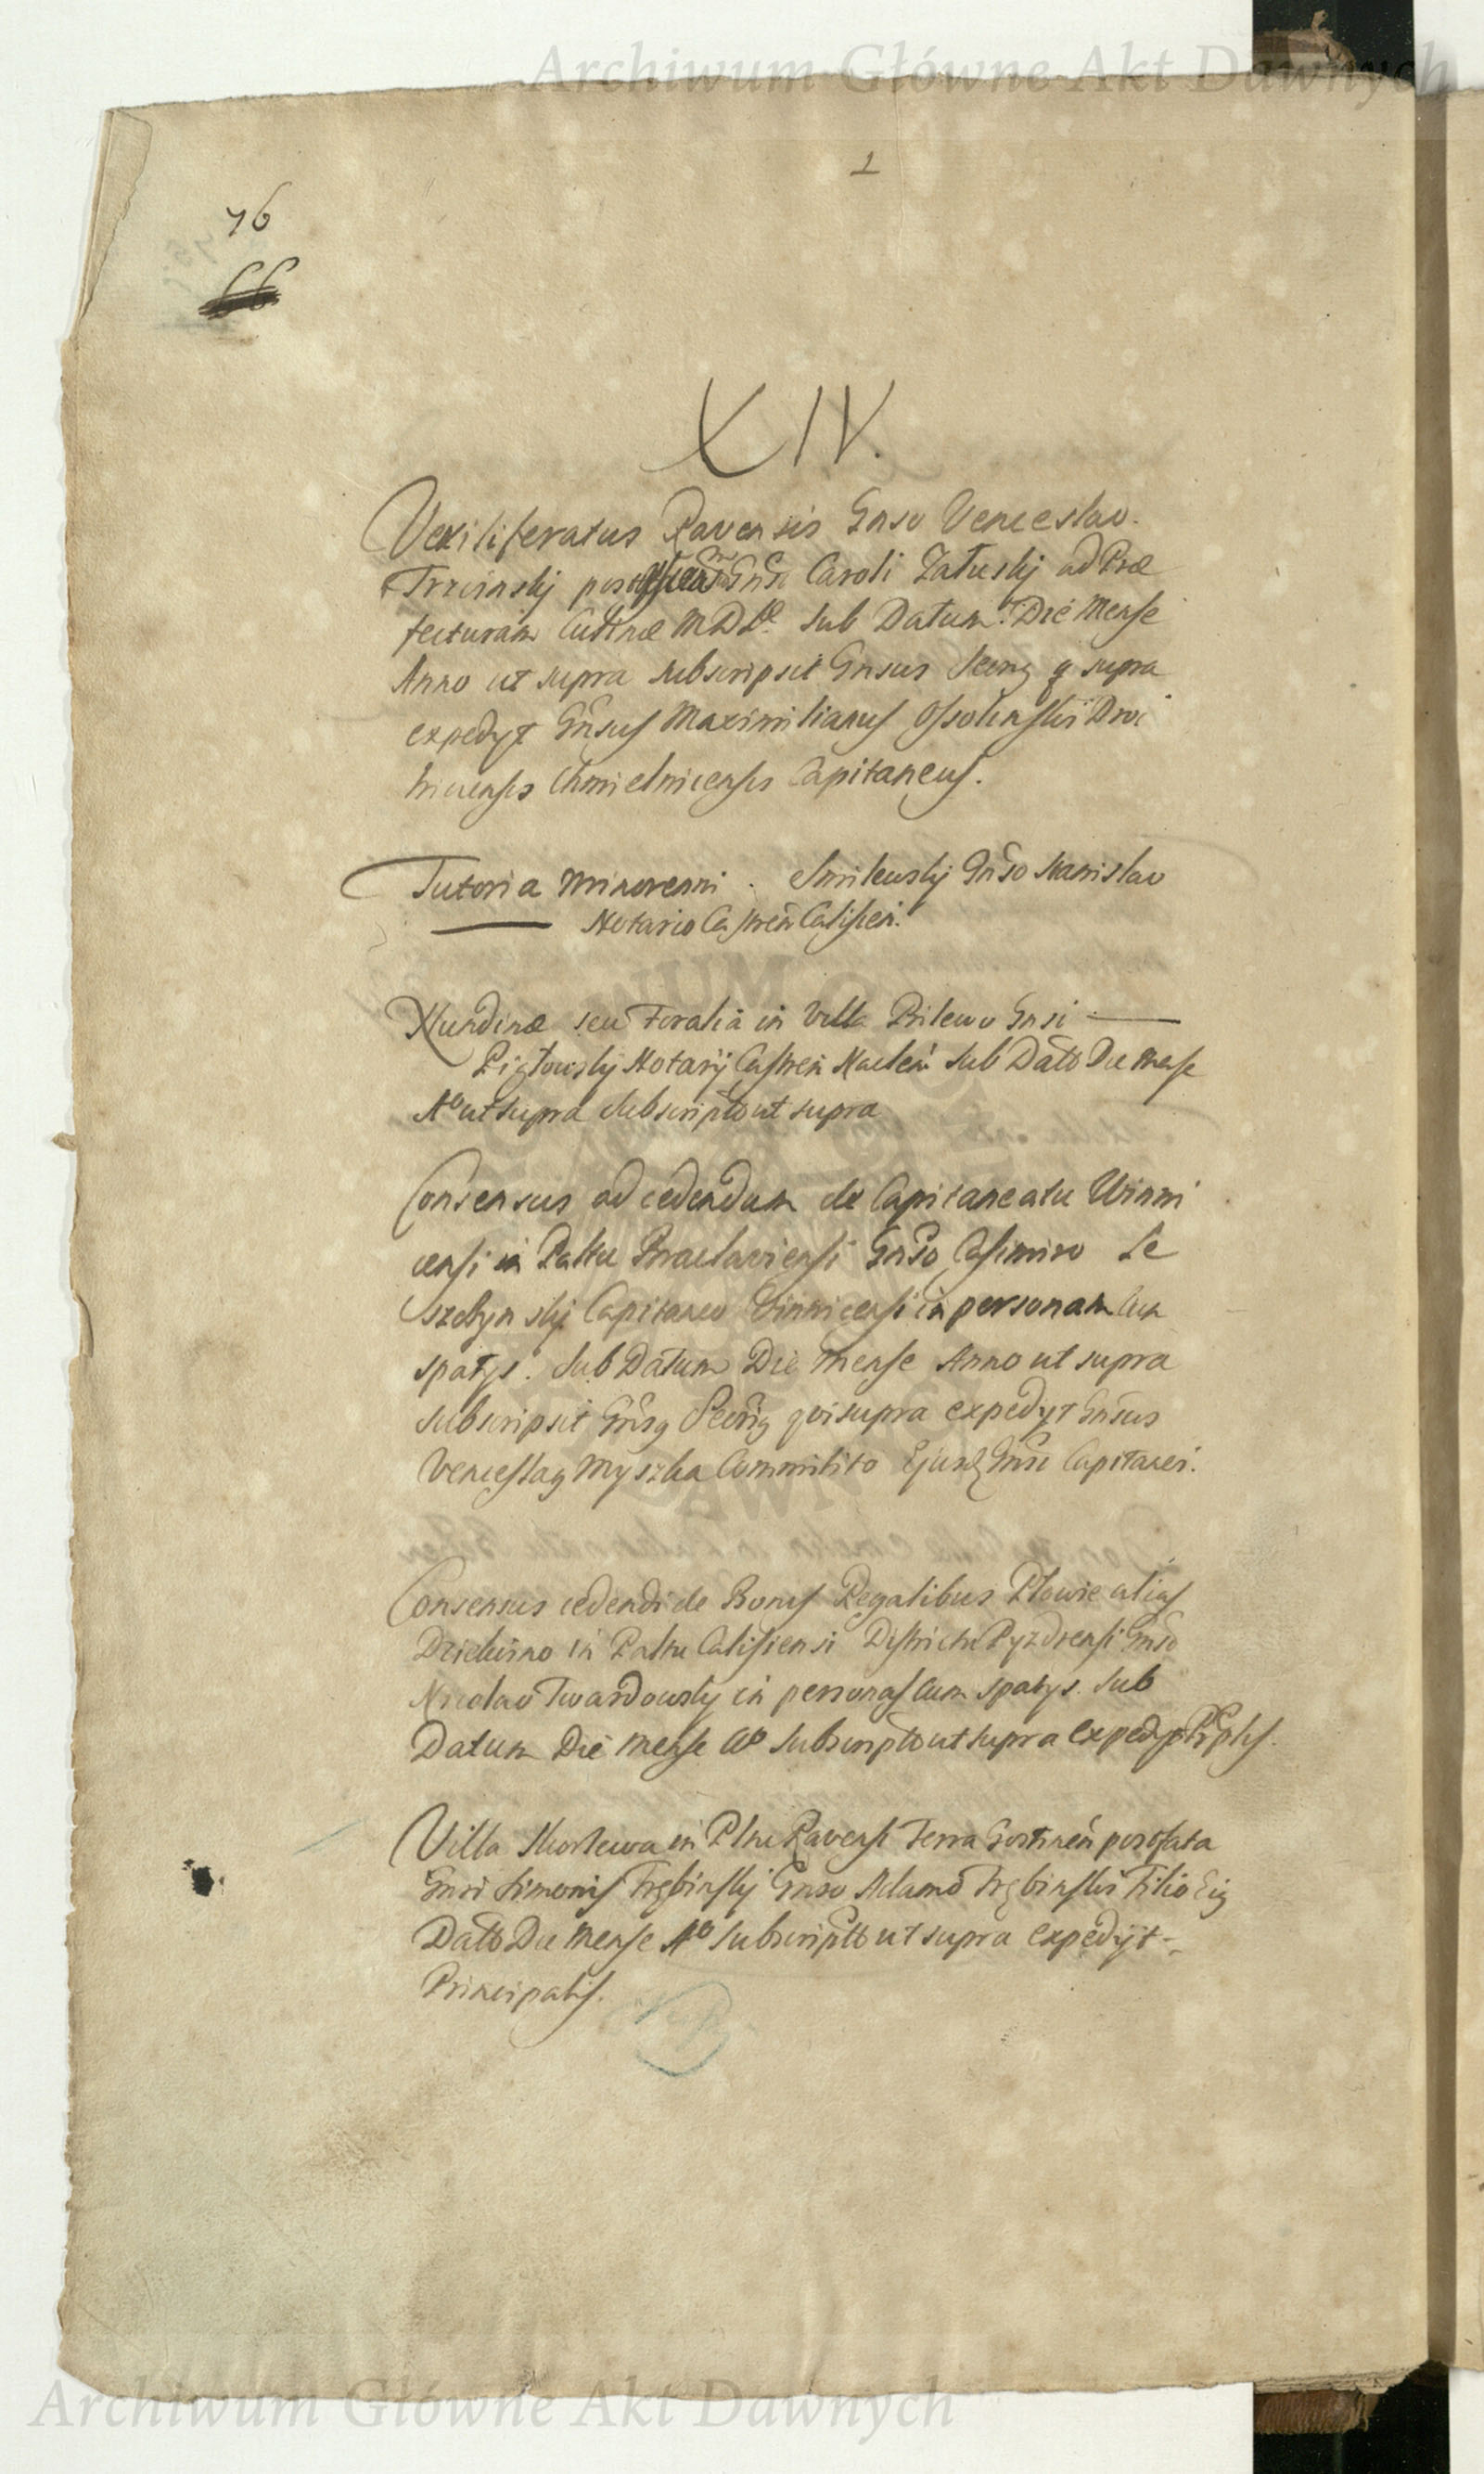 Archiwum Główne Akt Dawnych
1
76
66
XIV.
Vexiliferatus Ravensis Gnso Venceslao
Trzcinskj post Gnsi Caroli Załuskj ad Præ
fecturam Culinæ MDL. Sub Datum Die Mense
Anno ut supra subscripsit Gnsus Secrig q supra
expedyt Gnsus Maximilianus Ossolinski Dro
hicensis Chmielnicensis Capitaneus.
Tutoria Minorenni . Smilewskj Gnso Stanislao
Notario Castren Calisien.
Nundinæ seu Foralia in Villa Prilewo Gnsi
Pigłowskj Notarij Castren Naclen Sub Datto Die Mense
Ao ut supra Subscriptto ut supra
Consensus ad cedendum de Capitaneatu Winni
censi in Palttu Braclaviensi Gnso Casimiro Le
szczyn skj Capitaneo Vinnicensi in personam Cum
spatys. Sub Datum Die Mense Anno ut supra
subscripsit Gnsg Secrig qui supra expedyt Gnsus
Venceslag Myszka Commilito Ejusd Gnsi Capitanei.
Consensus cedendi de Bonis Regalibus Plowie alias
in Palttu Calisiensi Districtu Pyzdrensi Gnso
Nicolao Twardowskj in personas Cum spatys. Sub
Datum Die Mense Ao Subscriptto ut supra Expedyt Pplis.
Villa Skortewa in Plttu Ravensi Terra Gostinen post fata
Gnsi Simonis Trębinskj Gnso Adamo Trębinski Filio Eig
Datto Die Mense Ao Subscriptto ut supra Expedyit
Principalis.
Archiwum Główne Akt Dawnych